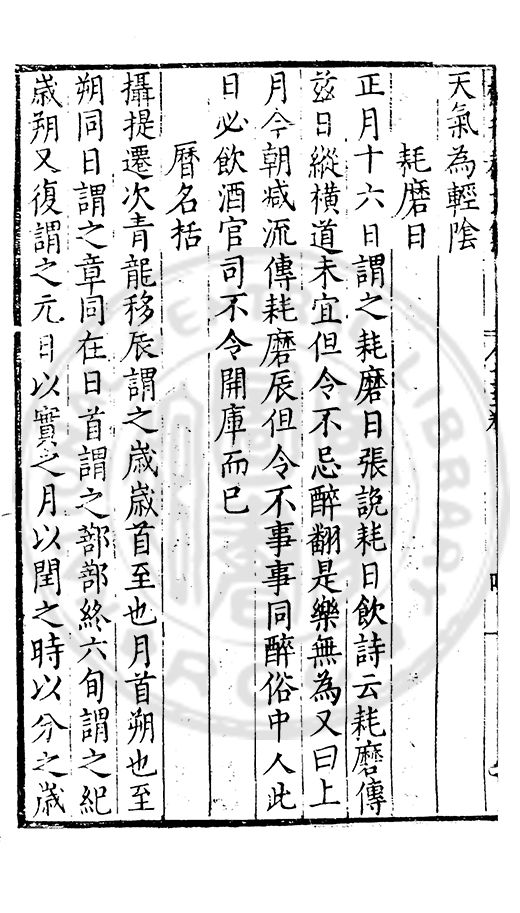 天氣為輕陰
耗磨日
正月十六日謂之耗磨日張説耗日飲詩云耗磨傳
兹日縱横道未宜但令不忌醉翻是樂無為又曰上
月今朝减流傳耗磨辰但令不事事同醉俗中人此
日必飲酒官司不令開庫而已
曆名括
攝提遷次青龍移辰謂之歲歲首至也月首朔也至
朔同日謂之章同在日首謂之蔀蔀終六旬謂之紀
歲朔又復謂之元日以實之月以閏之時以分之歲
LIBRARY